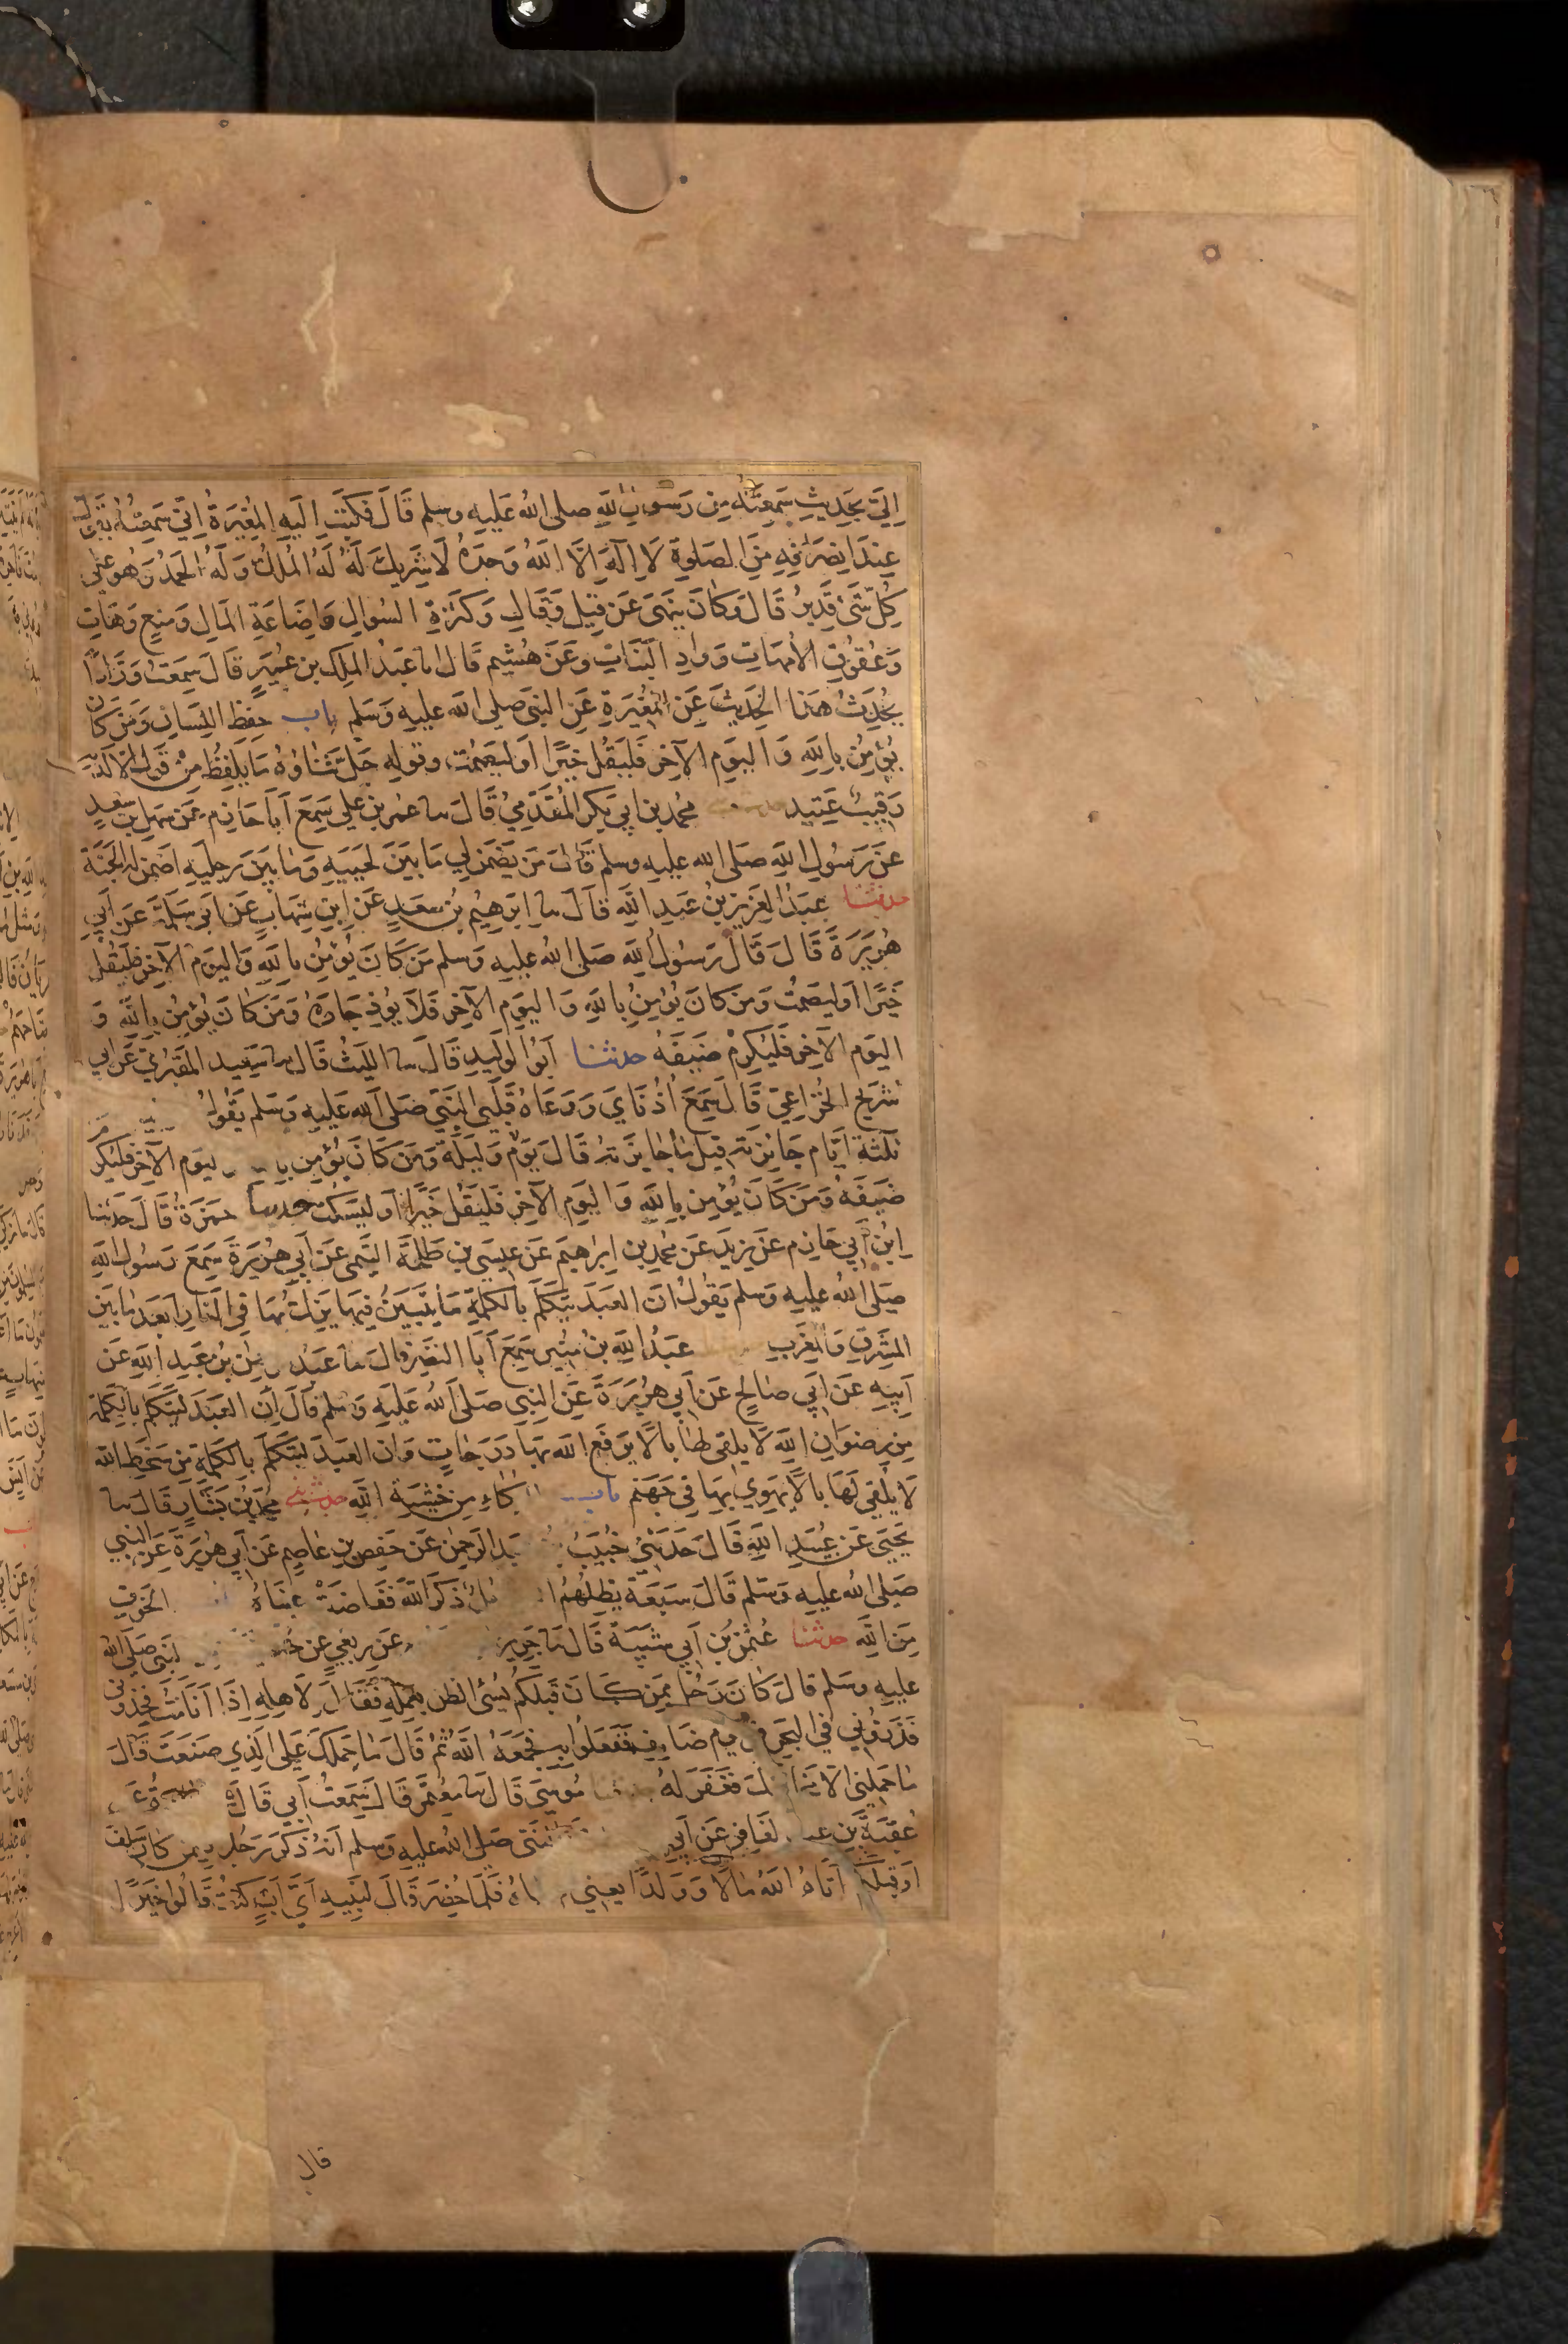 اِلَيَّ بِحَدِيثٍ سَمِعْتَهُ مِن رَسُولِ اللهِ صلى اللهُ عَلَيهِ وسلم قَالَ فَكَتَبَ اِلَيهِ المُغِيَرةُ اِنّي سَمِعْتُهُ يَقُولُ
عِندَ اِنصِرَافِهِ مِنَ الصَلوةِ لَا اِلٰهَ اِلَّا اللهُ وَحدَهُ لَا شَرِيكَ لَهُ لَهُ المُلكُ وَلَهُ الحَمدُ وَهُوَ عَلى
كُلِّ شَيْءٍ قَدِيرٌ قَالَ وَكَانَ يَنهَى عَن قِيلَ وَقَالَ وَكَثرَةِ السُوالِ وَاِضَاعَةِ المَالِ وَمَنعٍ وَهَاتِ
وَعُقُوقِ الأُمهَاتِ وَوَادِ البَنَاتِ وَعَن هُشَيم قَالَ اما عَبدُ المَلِكِ بن عُمَيرٍ قَالَ سَمِعتُ وَرَّادًا
يُحَدِّثُ هٰذا الحَدِيثَ عَنِ المُغِيرَةِ عَنِ النَبيِ صَلى الله عليهِ وَسَلم باب حِفظِ اللِسَانِ وَمَن كَانَ
يُؤمِنُ بِاللهِ وَاليَومِ الآخِرِ فَليَقُل خَيرًا اَو لِيَصمُت وقولِهِ جَلَّ ثَنَاؤُهُ مَا يَلفِظُ مِن قَولٍ اِلَّا لَدَيهِ
رَقِيبٌ عَتِيد محمد بن اَبي بَكرِ المُقَدَّمِيُّ قَالَ سا عُمَرُ بنُ عَلِي سَمِعَ اَبَا حَازِمٍ عَن سَهلِ بنِ سَعدٍ
عَن رَسُولِ اللهِ صَلى الله عليهِ وسلم قَالَ مَن يَضمَن لي مَا بَينَ لَحيَيهِ وَمَا بَينَ رِجلَيهِ اَضمَن لَهُ الجَنَّةَ
حدثنا عَبدُ العَزِيزِ بنُ عَبدِ اللهِ قَالَ سا اِبرَهِيمُ بنُ سَعدٍ عَنِ ابنِ شِهَابٍ عَن اَبي سَلَمَةَ عَن اَبي
هُرَيرَةَ قَالَ قَالَ رَسُولُ اللهِ صَلى اللهُ عليهِ وَسلم مَن كَانَ يُؤمِنُ بِاللهِ وَاليَومِ الآخِرِ فَليَقُل
خَيرًا اَو لِيَصمُت وَمَن كانَ يُؤمِنُ بِاللهِ وَاليَومِ الآخِرِ فَلَا يُؤذِ جَارَهُ وَمَن كَانَ يُؤمِنُ بِاللهِ وَ
اليَومِ الآخِرِ فَليُكرِم ضَيفَهُ حدثنا اَبُو الوَلِيدِ قَالَ سا اللَيثُ قَالَ سا سَعِيد المَقبُريِّ عَن اَبي
شُرَيحٍ الخُزَاعِيّ قَالَ سَمِعَ اُذُنَايَ وَوَعَاهُ قَلبِي النَبِيَّ صَلى الله عَليهِ وَسلم يَقُولُ
ثَلٰثَةُ اَيَّامٍ جَائِزَتُهُ قِيلَ مَا جَائِزَتُهُ قَالَ يَومٌ وَلَيلَةٌ وَمَن كَانَ يُؤمِنُ بِا ليومِ الآخِرِ فَليُكرِم
ضَيفَهُ وَمَن كَانَ يُؤمِن بِاللهِ وَاليَومِ الآخِرِ فَليَقُل خَيرًا اَو لِيَسكُت حدثنا حَمزَةُ قَالَ حَدثنا
ابنُ اَبي حَازِمٍ عَن يَزِيدَ عَن محمد بنِ اِبرَاهِيمَ عَن عِيسَى بنِ طَلحَةَ التَيمِي عَن اَبي هُرَيرَةَ سَمِعَ رَسُولَ اللهِ
صَلى اللهُ عليهِ وَسَلم يَقُولُ انَّ العَبدَ يَتَكَلَّمُ بِالكَلِمَةِ مَا يَتَبَيَّنُ فِيهَا يَزِلُّ بِهَا فِي النَّارِ اَبعَدَ مَا بَينَ
المَشرِقِ وَالمَغرِبِ عَبدُ اللهِ بنُ مُنيرٍ سَمِعَ اَبَا النَضرِ قالَ سا عَبدُ الرحمٰن بن عَبدِ اللهِ عَن
اَبِيهِ عَن اَبي صَالِحٍ عَن اَبي هُرَيرَةَ عَنِ النَبي صَلى اللهُ عَليهِ وَسلم قَالَ اِنَّ العَبدَ لَيَتَكَلَّمُ بِالكَلِمَةِ
مِن رِضوَانِ اللهِ لَا يُلقِي لهَا بَالًا يَرفَع اللهُ بِهَا دَرَجَاتٍ وَاِنَّ العَبدَ لَيَتَكَلَّمُ بِالكَلِمَةِ مِن سَخَطِ الله
لَا يُلقِي لَهَا بَالًا يَهوِي بِهَا فِي جَهَنَّم باب البُكَاءِ مِن خَشيَةِ اللهِ حدثني محمد بنُ بَشَّارٍ قَالَ سا
يَحيَى عَن عُبَيدِ اللهِ قَالَ حَدثَني خُبَيبُ بد الرَحمٰنِ عَن حَفصِ بنِ عَاصِمٍ عَن اَبي هُرَيرَةَ عَنِ النَبِي
صَلى اللهُ عليهِ وَسَلم قَالَ سَبعَةٌ يُظِلُّهُمُ ا ذَكَرَ اللهَ فَفَاضَت عَينَاهُ الخَوفِ
مِنَ اللهِ حدثنا عُثمٰنُ بنُ اَبي شَيبَةَ قَالَ سا جَرِير عَن رِبعِيٍّ عَن حُذ لنَبي صَلى الله
عليهِ وَسَلم قَالَ كَانَ رَجُلٌ مِمَّن كَانَ قَبلَكُم يُسِيءُ الظَن بِعَمَلِهِ فَقَالَ لِاَهلِهِ اِذَا اَنَا مُتُّ فَخُذُونِي
فَذَرُّونِي فِي البَحرِ في يومٍ صَايِفٍ فَفَعَلُوا بِهِ فَجَمَعَهُ اللهُ ثُم قَالَ مَا حَمَلَكَ عَلَى الَّذِي صَنَعتَ قَالَ
مَا حَمَلَنِي اِلَّا مَخَافَتُكَ فَغَفَرَ لهُ حدثنا مُوسَى قَالَ سا مُعتَمِرٌ قَالَ سَمِعتُ اَبي قَالَ قتادةُ عن
عُقبَةَ بنِ عبد الغَافِرِ عَن اَبي النَبي صَلى اللهُ عليهِ وسلم اَنَّهُ ذَكَرَ رَجُلًا فِيمَن كَانَ سَلَفَ
اَو قَبلَكُم اٰتَاهُ اللهُ مَالًا وَوَلَدًا يعني اهُ فَلَمَّا حُضِرَ قَالَ لِبَنِيهِ اَيَّ اَبٍ كُنتُ قَالُوا خَيرًا
قال